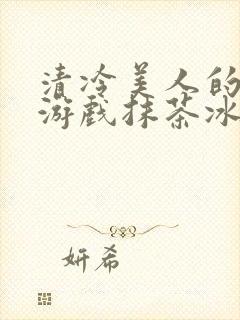 清冷美人的
游戏抹茶冰
妍希